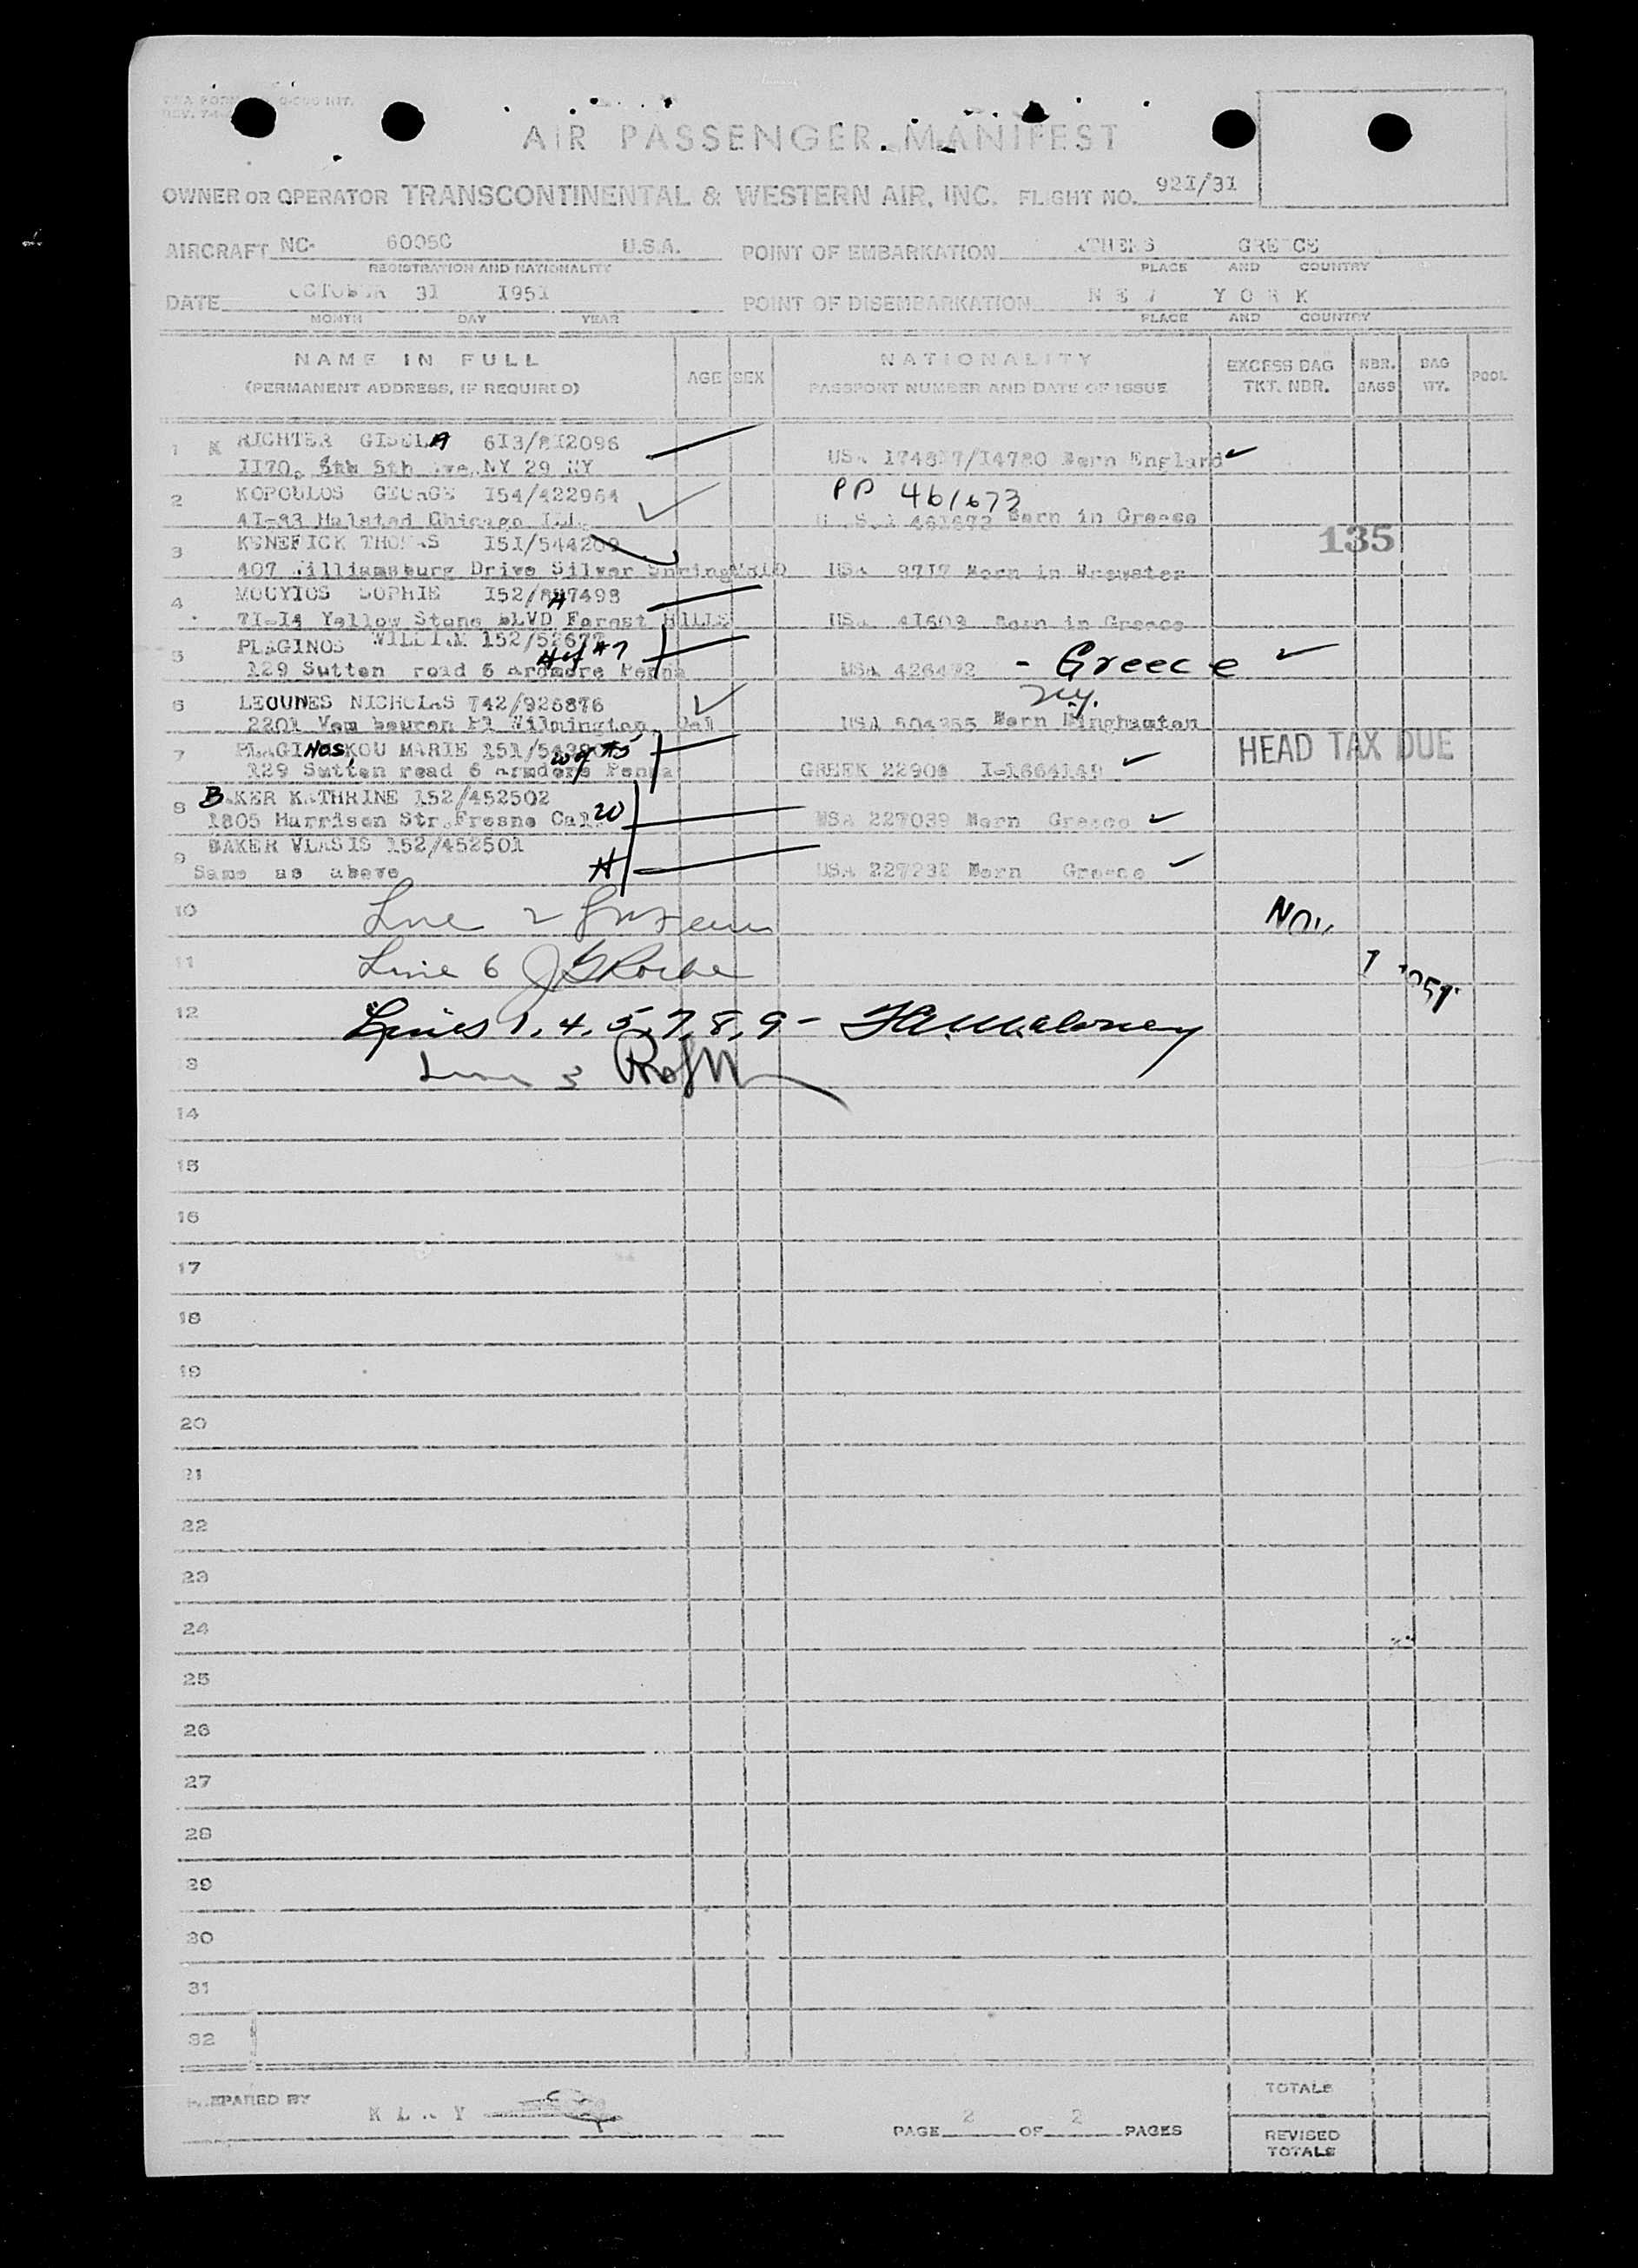 AIR PASSENGER MANIFEST
OWNER OR OPERATOR TRANSCONTINENTAL & WESTERN AIR, INC. FLIGHT NO. 921/31
AIRCRAFT NC- 6005C U.S.A. POINT OF EMBARKATION ATHENS GREECE
REGISTRATION AND NATIONALITY PLACE AND COUNTRY
DATE OCTOBER 31 1951 POINT OF DISEMBARKATION NEW YORK
MONTH DAY YEAR PLACE AND COUNTRY
NAME IN FULL AGE SEX NATIONALITY EXCESS BAG NBR. BAG POOL
(PERMANENT ADDRESS, IF REQUIRED) PASSPORT NUMBER AND DATE OF ISSUE TKT. NBR. BAGS WT.
1 RICHTER GISELA 6I3/8I2096
II70, 5th Ave. NY 29 NY USA Born England
2 KOPOULOS GEORGE I54/422964 PP 461673
4I-33 Halsted Chicago Ill. Born in Greece
135
3 KENEFICK THOMAS I5I/544209
407 Williamsburg Drive Silver Spring USA 9717 Born in
4 MOUYIOS SOPHIE I52/
7I-I4 Yellow Stone BLVD Forest HILLS USA 41609 Born in Greece
5 PLAGINOS WILLIAM 152/52677
129 Sutten road 6 Ardmore Penna USA 426472 - Greece
6 LEOUNES NICHOLAS 742/926876 NY.
2201 Van beuren Pl Wilmington Cal USA 504255 Born Binghamton
7 PLAGINOSKOU MARIE 151/
129 Sutten road 6 Armdore Penna GREEK 22908 I-1664149
HEAD TAX DUE
8 BAKER KATHRINE 152/452502
1805 Harrison Str.Fresno Cal. USA 227039 Born Greece
9 BAKER VLASIS 152/452501
Same as above H USA Born Greece
10 Line 2 NOV
11 Line 6 J G Roche 1 1951
12 Lines 1, 4, 5, 7, 8, 9 - Maloney
13 Line 3
14
15
16
17
18
19
20
21
22
23
24
25
26
27
28
29
30
31
32
TOTALS
PREPARED BY
PAGE 2 OF 2 PAGES
REVISED
TOTALS